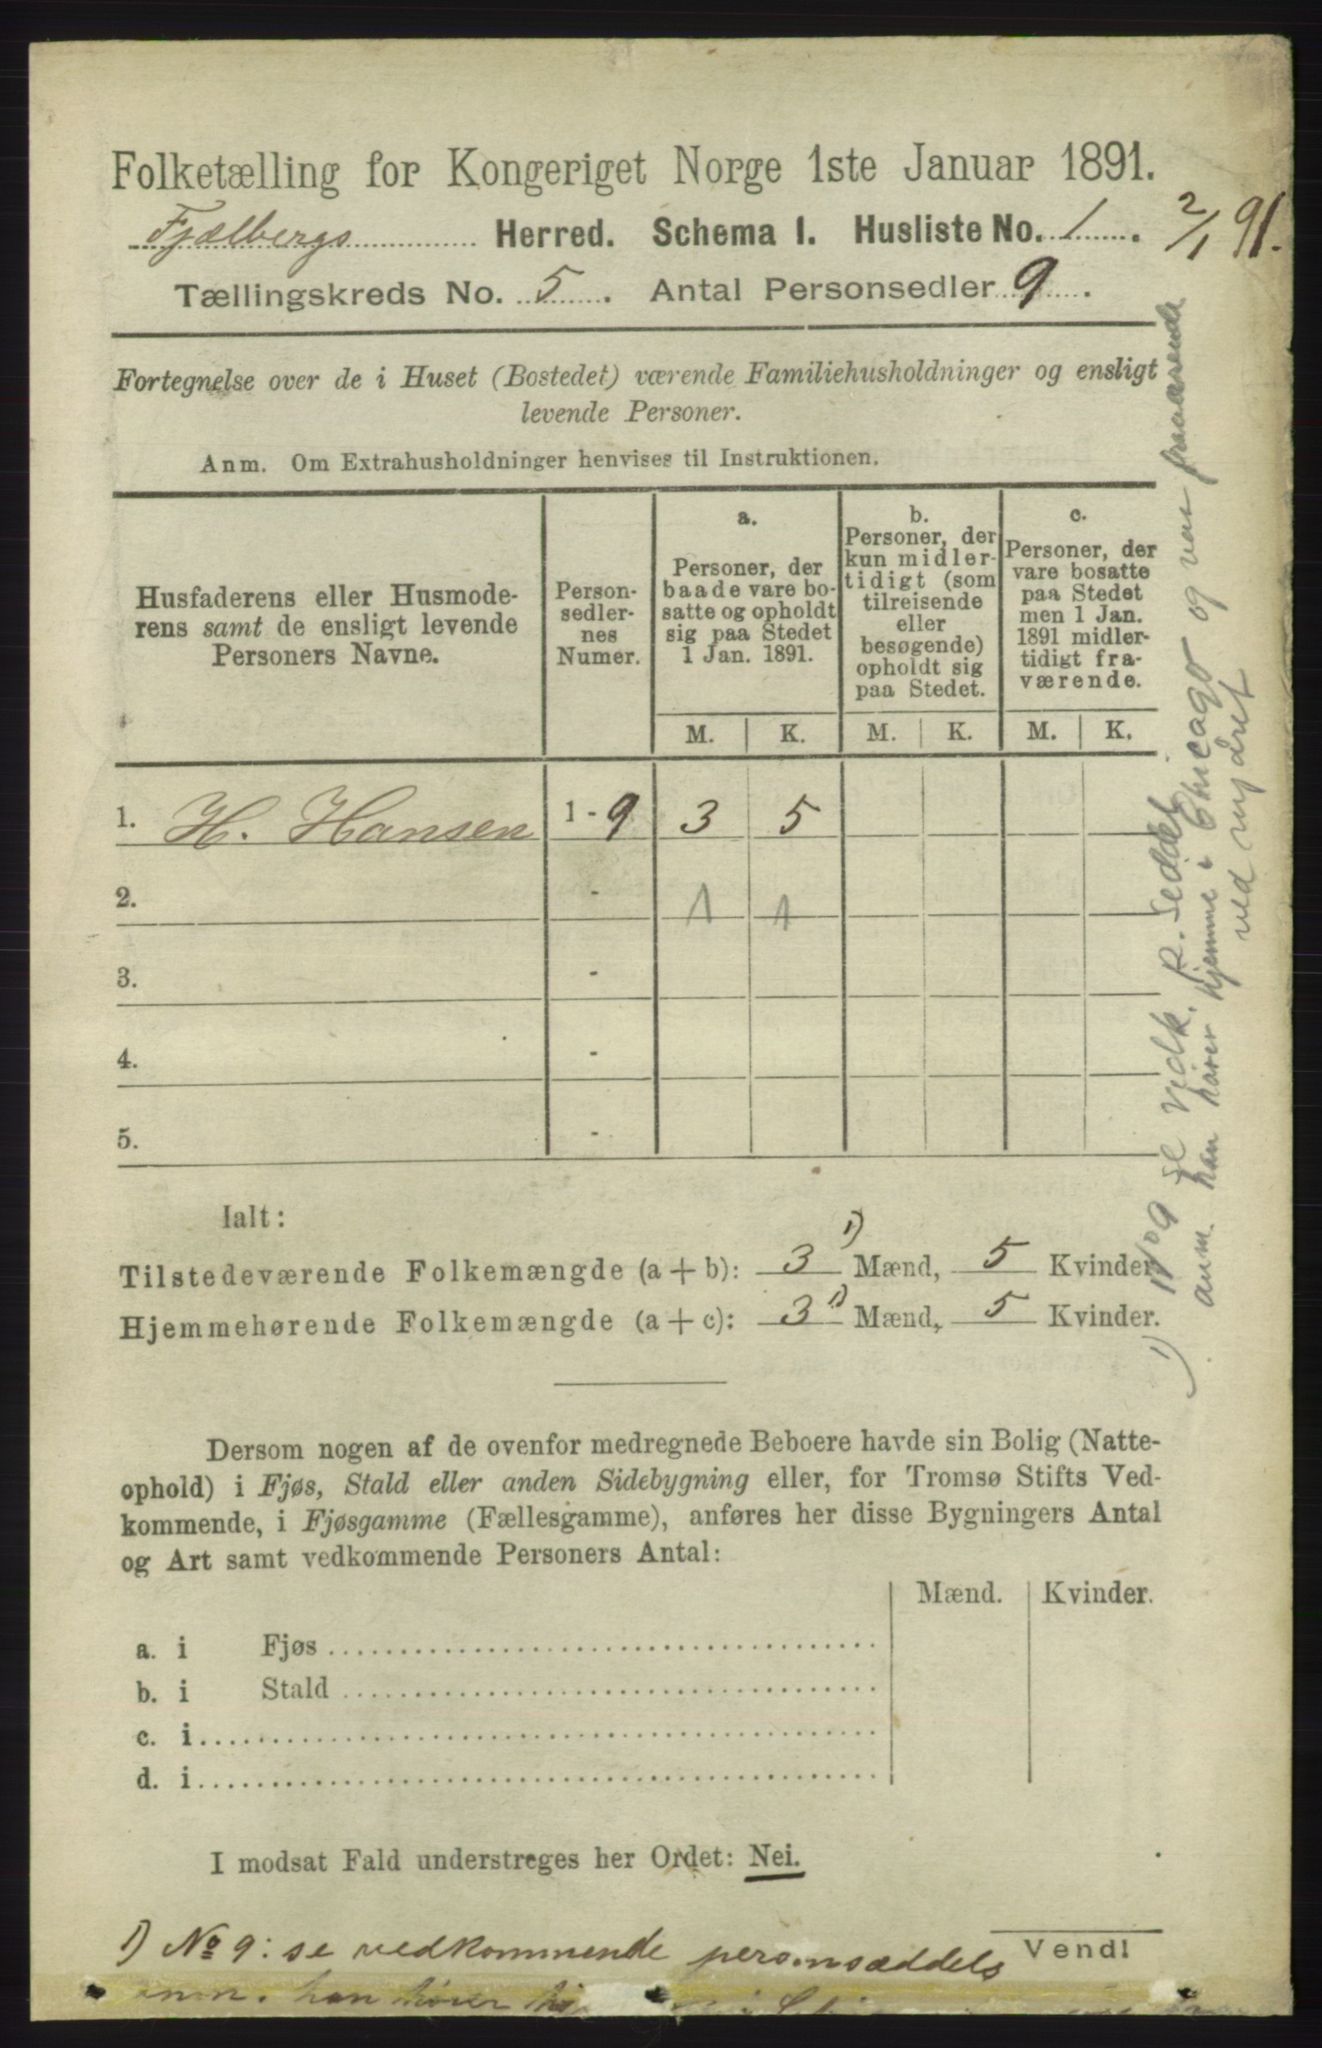 Folketælling for Kongeriget Norge 1ste Januar 1891.
Fjælbergs Herred. Schema I. Husliste No. 1. 2/1 91.
Tællingskreds No. 5. Antal Personsedler 9.
Fortegnelse over de i Huset (Bostedet) værende Familiehusholdninger og ensligt
levende Personer.
Anm. Om Extrahusholdninger henvises til Instruktionen.
Husfaderens eller Husmode-
rens samt de ensligt levende
Personers Navne.
Person-
sedler-
nes
Numer.
a.
Personer, der
baade vare bo-
satte og opholdt
sig paa Stedet
1 Jan. 1891.
b.
Personer, der
kun midler-
tidigt (som
tilreisende
eller
besøgende)
opholdt sig
paa Stedet.
c.
Personer, der
vare bosatte
paa Stedet
men 1 Jan.
1891 midler-
tidigt fra-
værende.
M. K. M. K. M. K.
1. H. Hansen 1 - 9 3 5
2. - 1 1
3. -
4. -
5. -
Ialt:
Tilstedeværende Folkemængde (a + b): 3 1) Mænd, 5 Kvinder
Hjemmehørende Folkemængde (a + c): 3 1) Mænd, 5 Kvinder.
Dersom nogen af de ovenfor medregnede Beboere havde sin Bolig (Natte-
ophold) i Fjøs, Stald eller anden Sidebygning eller, for Tromsø Stifts Ved-
kommende, i Fjøsgamme (Fællesgamme), anføres her disse Bygningers Antal
og Art samt vedkommende Personers Antal:
Mænd. Kvinder.
a. i Fjøs
b. i Stald
c. i
d. i
I modsat Fald understreges her Ordet: Nei.
1) No 9: se vedkommende personsæddels
Vend!
anm. han hører
1) No 9 se vedk. p. seddel
anm. han hører hjemme i Chicago og var fraværende
ved nydret